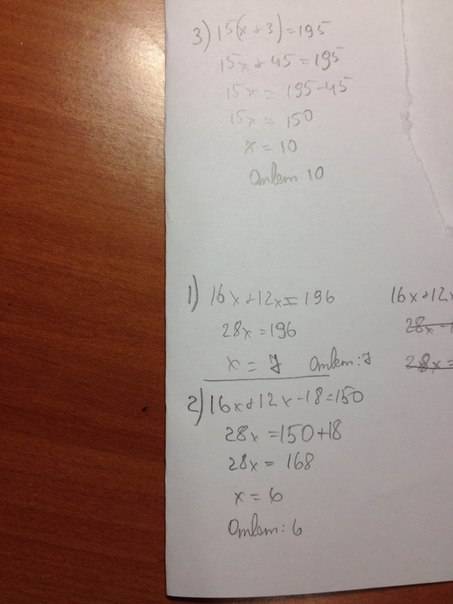 3) 15(x+3)=195
15x+45=195
15x = 195-45
15x = 150
x = 10
Ответ 10
1) 16x+12x=196
28x=196
x = 7 Ответ: 7
2) 16x+12x-18=150
28x=150+18
28x= 168
x = 6
Ответ: 6
16x+12x
28x
28x=